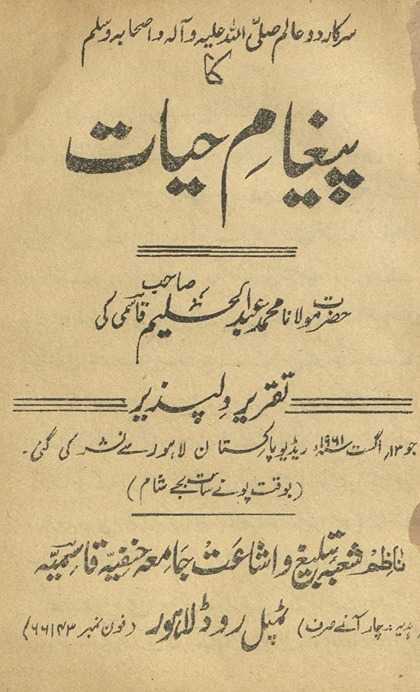 سرکار دو عالم صلی اللہ علیہ و آلہ و اصحابہ وسلم
کا
پیغامِ حیات
حضرت مولانا محمد عبد الحلیم صاحب قاسمی کی
تقریر دلپذیر
جو ۱۳ اگست ۱۹۶۱ء ریڈیو پاکستان لاہور سے نشر کی گئی۔
(بوقت پونے سات بجے شام)
ناظم شعبہ تبلیغ و اشاعت جامعہ حنفیہ قاسمیہ
ہدیہ: چار آنے صرف) ٹمپل روڈ لاہور (فون نمبر ۶۶۱۴۳)